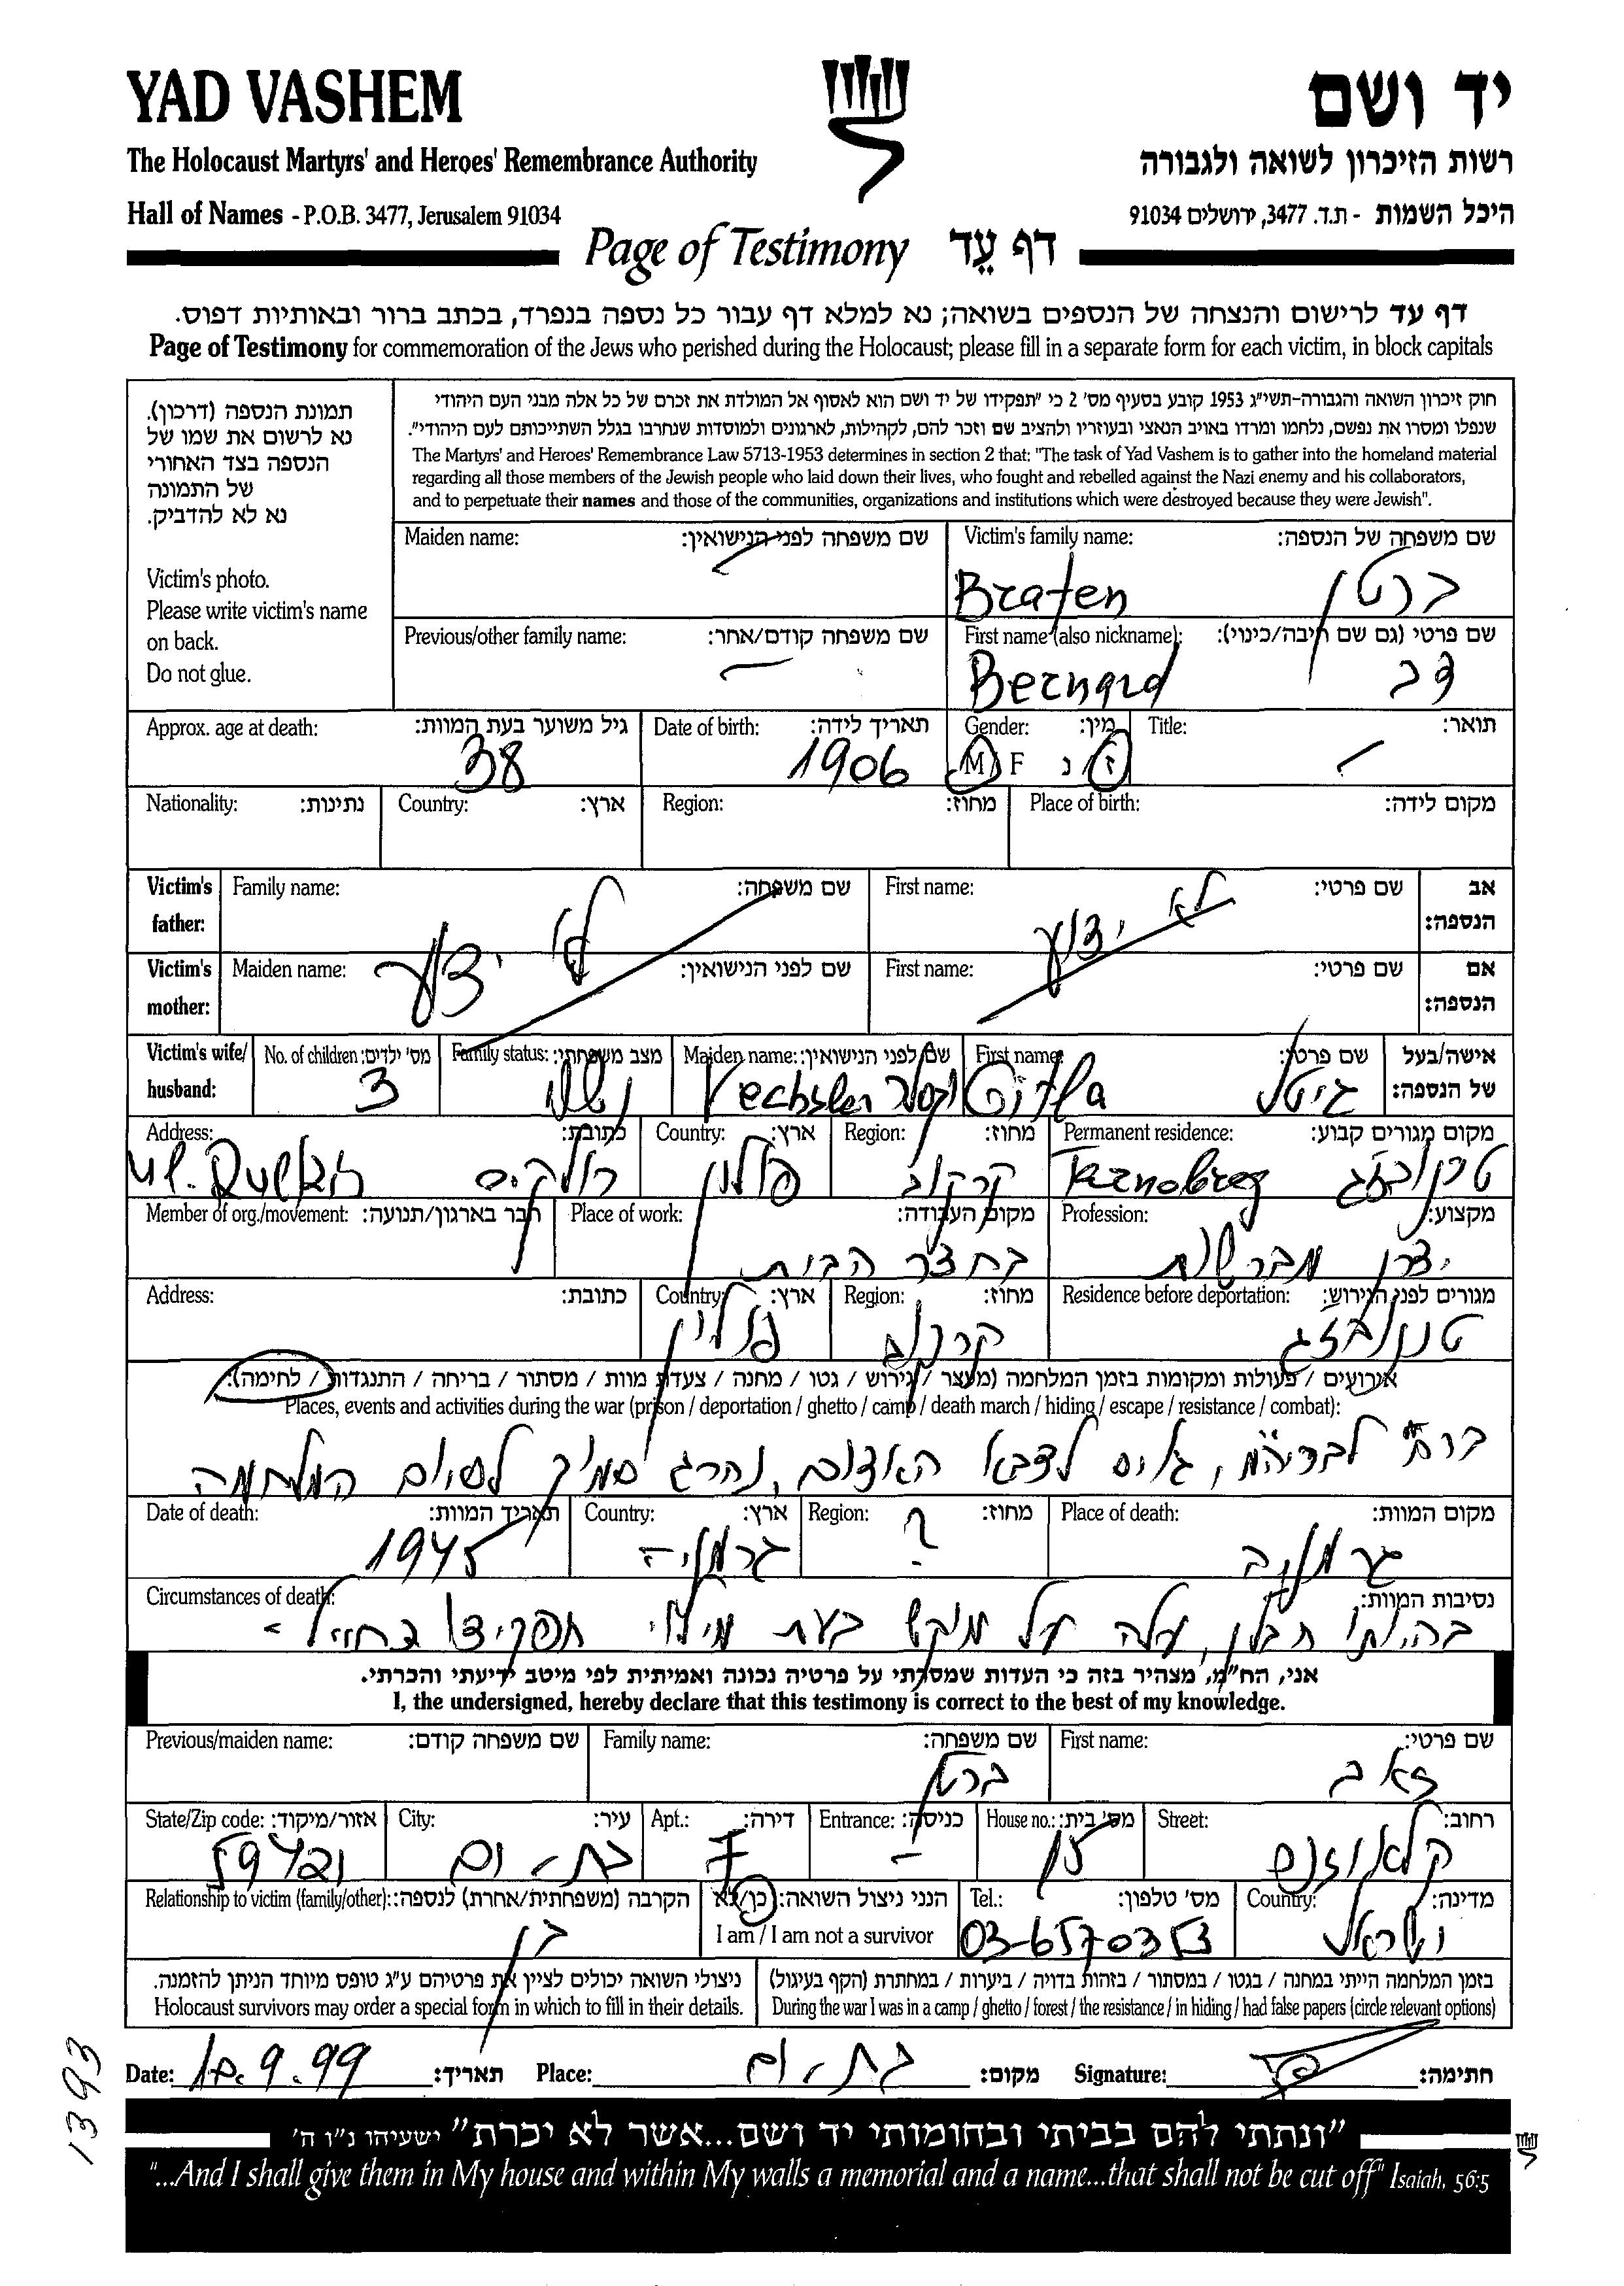 YAD VASHEM יד ושם
The Holocaust Martyrs' and Heroes' Remembrance Authority רשות הזיכרון לשואה ולגבורה
Hall of Names - P.O.B. 3477, Jerusalem 91034 היכל השמות - ת.ד. 3477, ירושלים 91034
Page of Testimony דף עֵד
דף עד לרישום והנצחה של הנספים בשואה; נא למלא דף עבור כל נספה בנפרד, בכתב ברור ובאותיות דפוס.
Page of Testimony for commemoration of the Jews who perished during the Holocaust; please fill in a separate form for each victim, in block capitals
תמונת הנספה (דרכון).
נא לרשום את שמו של
הנספה בצד האחורי
של התמונה
נא לא להדביק.
Victim's photo.
Please write victim's name
on back.
Do not glue.
חוק זיכרון השואה והגבורה-תשי"ג 1953 קובע בסעיף מס' 2 כי "תפקידו של יד ושם הוא לאסוף אל המולדת את זכרם של כל אלה מבני העם היהודי
שנפלו ומסרו את נפשם, נלחמו ומרדו באויב הנאצי ובעוזריו ולהציב שם וזכר להם, לקהילות, לארגונים ולמוסדות שנחרבו בגלל השתייכותם לעם היהודי".
The Martyrs' and Heroes' Remembrance Law 5713-1953 determines in section 2 that: "The task of Yad Vashem is to gather into the homeland material
regarding all those members of the Jewish people who laid down their lives, who fought and rebelled against the Nazi enemy and his collaborators,
and to perpetuate their names and those of the communities, organizations and institutions which were destroyed because they were Jewish".
Maiden name: שם משפחה לפני הנישואין: Victim's family name: שם משפחה של הנספה:
Braten ברטן
Previous/other family name: שם משפחה קודם/אחר: First name (also nickname): שם פרטי (גם שם חיבה/כינוי):
Bernard דב
Approx. age at death: גיל משוער בעת המוות: Date of birth: תאריך לידה: Gender: מין: Title: תואר:
38 1906 M F ז נ
Nationality: נתינות: Country: ארץ: Region: מחוז: Place of birth: מקום לידה:
Victim's father: Family name: שם משפחה: First name: שם פרטי: אב הנספה:
לא ידוע לא ידוע
Victim's mother: Maiden name: שם לפני הנישואין: First name: שם פרטי: אם הנספה:
Victim's wife/ husband: No. of children: מס' ילדים: Family status: מצב משפחתי: Maiden name: שם לפני הנישואין: First name: שם פרטי: אישה/בעל של הנספה:
3 נשוי Vechsler וקסלר Gitla גיטל
Address: כתובת: Country: ארץ: Region: מחוז: Permanent residence: מקום מגורים קבוע:
ul. פולין קרקוב Tarnobreg טרנובזג
Member of org./movement: חבר בארגון/תנועה: Place of work: מקום העבודה: Profession: מקצוע:
בחצר הבית יצרן מברשות
Address: כתובת: Country: ארץ: Region: מחוז: Residence before deportation: מגורים לפני הגירוש:
פולין קרקוב טרנובזג
אירועים / פעולות ומקומות בזמן המלחמה (מעצר / גירוש / גטו / מחנה / צעדת מוות / מסתור / בריחה / התנגדות / לחימה):
Places, events and activities during the war (prison / deportation / ghetto / camp / death march / hiding / escape / resistance / combat):
ברח לבריה"מ, גויס לצבא האדום, נהרג סמוך לסיום המלחמה
Date of death: תאריך המוות: Country: ארץ: Region: מחוז: Place of death: מקום המוות:
1945 גרמניה ? גרמניה
Circumstances of death: נסיבות המוות:
בהיותו חבלן, עלה על מוקש בעת מילוי תפקידו כחייל -
אני, הח"מ, מצהיר בזה כי העדות שמסרתי על פרטיה נכונה ואמיתית לפי מיטב ידיעתי והכרתי.
I, the undersigned, hereby declare that this testimony is correct to the best of my knowledge.
Previous/maiden name: שם משפחה קודם: Family name: שם משפחה: First name: שם פרטי:
ברטן זאב
State/Zip code: אזור/מיקוד: City: עיר: Apt.: דירה: Entrance: כניסה: House no.: מס' בית: Street: רחוב:
בת-ים 7 - 15 קלאוזנר
Relationship to victim (family/other): הקרבה (משפחתית/אחרת) לנספה: הנני ניצול השואה: כן/לא Tel.: מס' טלפון: Country: מדינה:
בן I am / I am not a survivor 03-6570353 ישראל
ניצולי השואה יכולים לציין את פרטיהם ע"ג טופס מיוחד הניתן להזמנה. בזמן המלחמה הייתי במחנה / בגטו / במסתור / בזהות בדויה / ביערות / במחתרת (הקף בעיגול)
Holocaust survivors may order a special form in which to fill in their details. During the war I was in a camp / ghetto / forest / the resistance / in hiding / had false papers (circle relevant options)
Date: 10.9.99 תאריך: Place: בת-ים מקום: Signature: חתימה:
1393
"ונתתי להם בביתי ובחומותי יד ושם...אשר לא יכרת" ישעיהו נ"ו ה'
"...And I shall give them in My house and within My walls a memorial and a name...that shall not be cut off" Isaiah, 56:5